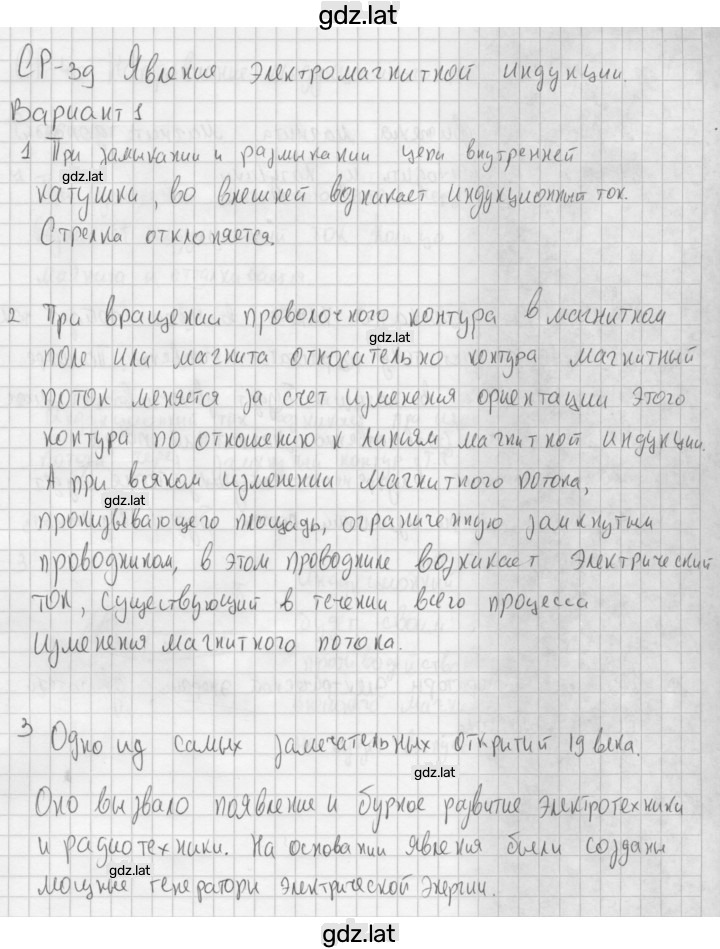 gdz.lat
СР-39 Явления электромагнитной индукции.
Вариант 1
1 При замыкании и размыкании цепи внутренней
gdz.lat
катушки, во внешней возникает индукционный ток.
Стрелка отклоняется.
2 При вращении проволочного контура в магнитном
gdz.lat
поле или магнита относительно контура магнитный
поток меняется за счет изменения ориентации этого
контура по отношению к линиям магнитной индукции.
А при всяком изменении магнитного потока,
gdz.lat
пронизывающего площадь, ограниченную замкнутым
проводником, в этом проводнике возникает электрический
ток, существующий в течении всего процесса
изменения магнитного потока.
3 Одно из самых замечательных открытий 19 века.
gdz.lat
Оно вызвало появление и бурное развитие электротехники
и радиотехники. На основании явления были созданы
gdz.lat
мощные генератори электрической энергии.
gdz.lat